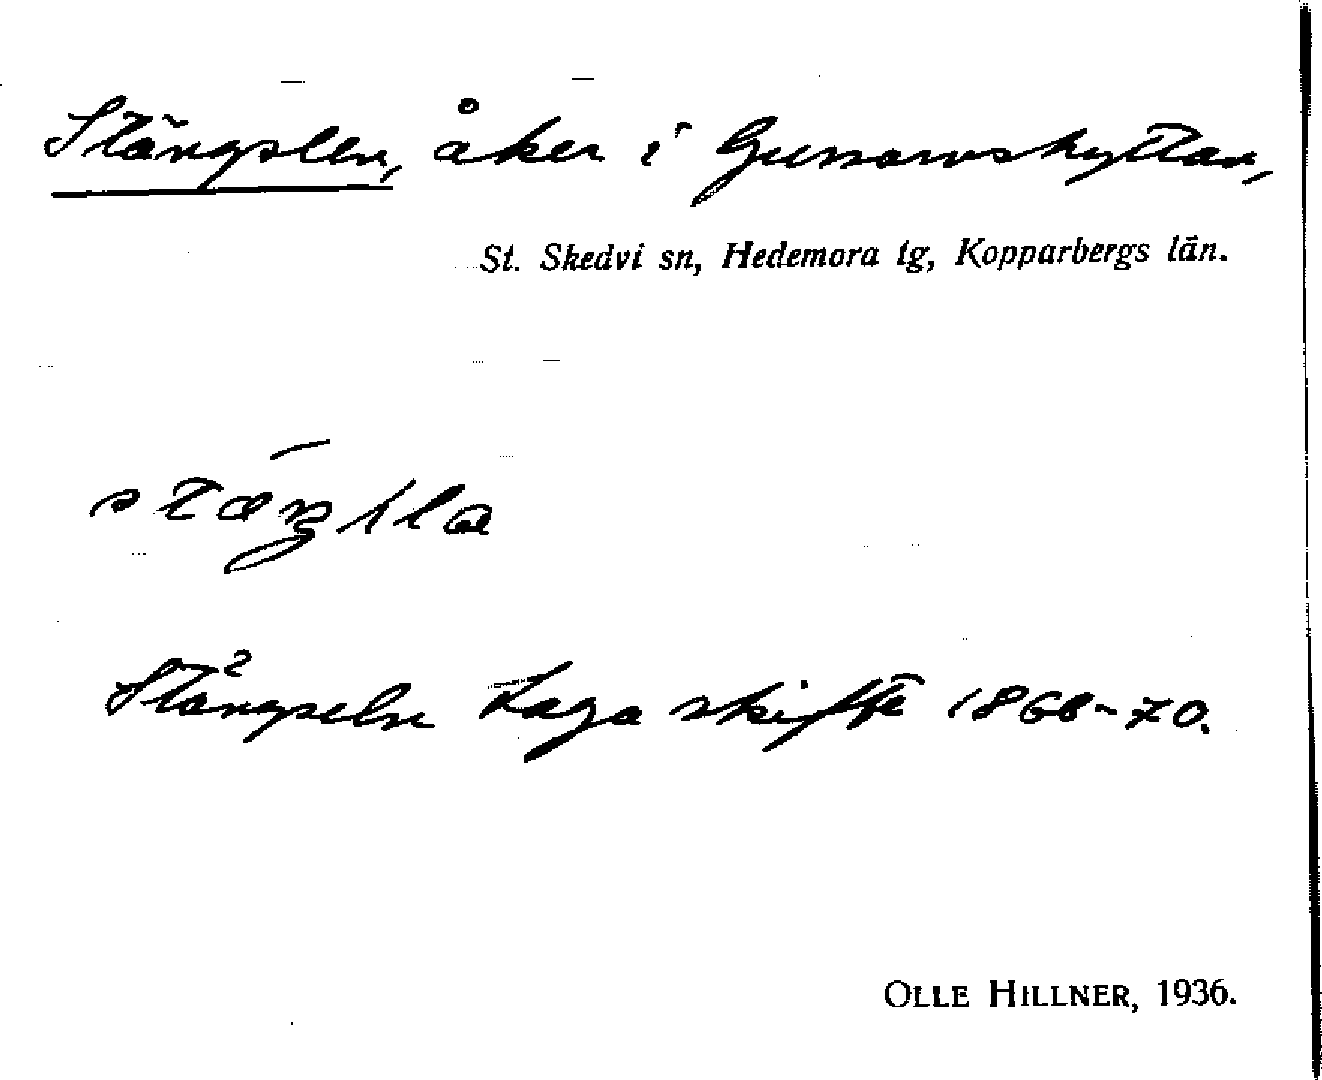 Stängslen, åker i Gunnarshyttan,
St. Skedvi sn, Hedemora tg, Kopparbergs län.
Stångseln Laga skifte 1868-70.
OLLE HILLNER, 1936.